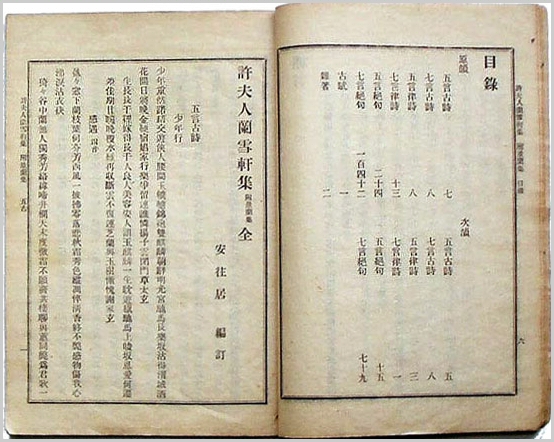 目錄
原韻
五言古詩 七
七言古詩 八
五言律詩 八
七言律詩 十三
五言絕句 二十四
七言絕句 一百四十二
古賦 一
雜著 二
次韻
五言古詩 五
七言古詩 八
五言律詩 三
七言律詩 一
五言絕句 十五
七言絕句 七十九
許夫人蘭雪軒集 附景蘭集 目錄
六
許夫人蘭雪軒集 附景蘭集 全
安往居 編訂
五言古詩
少年行
少年重然諾結交遊俠人腰間玉轆轤錦袍雙麒麟朝辭明光宮馳馬長樂坂沽得渭城酒
花間日將晚金鞭宿倡家行樂爭留連誰憐揚子雲閉門草太玄
生長長干裡嫁得長干人良人美容姿人謂玉麒麟一生耽遊蕩馳馬上峻坂恩愛何
感遇 四首
盈々窓下蘭枝葉何芬芳西風一被拂零落悲秋霜秀色縱凋悴清香終不死感物傷我心
涕淚沾衣袂
猗々谷中蘭無人獨秀芳
許夫人蘭雪軒集 附景蘭集 五古
一